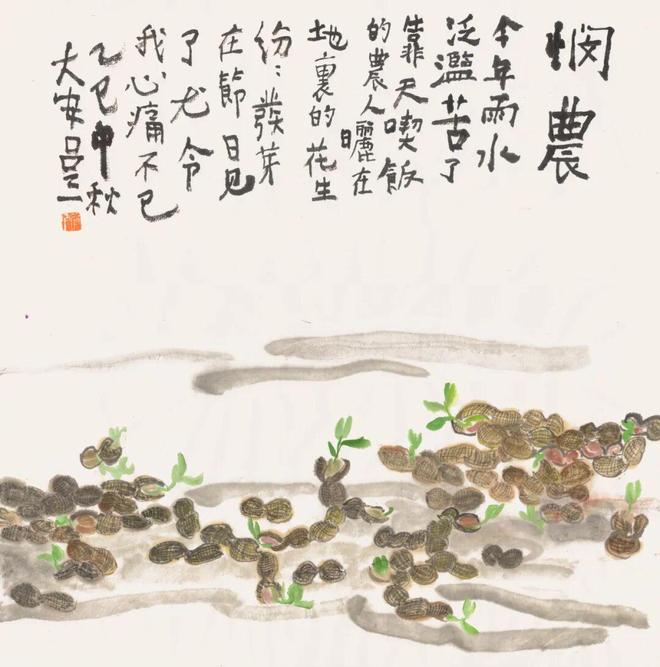 悯農
今年雨水
泛濫苦了
靠天喫飯
的農人曬在
地裏的花生
紛:發芽
在節日見
了尤令
我心痛不已
乙巳中秋
大安吕三